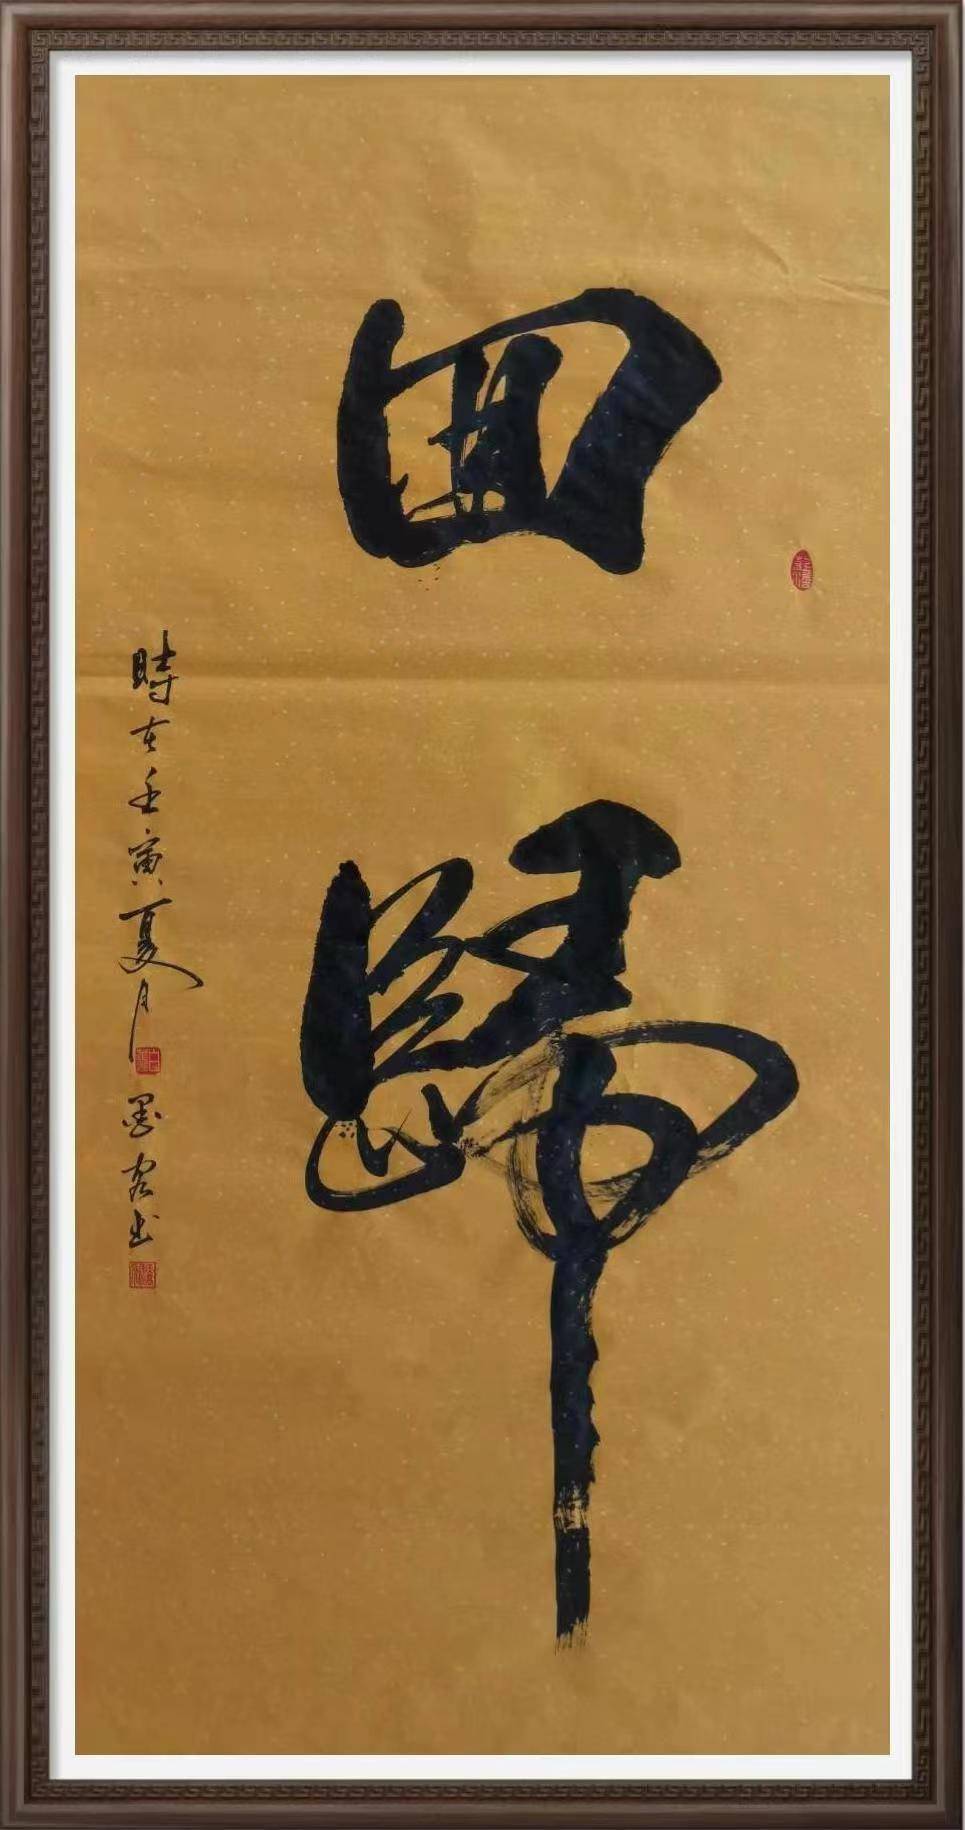 回歸
時在壬寅夏月
墨客书